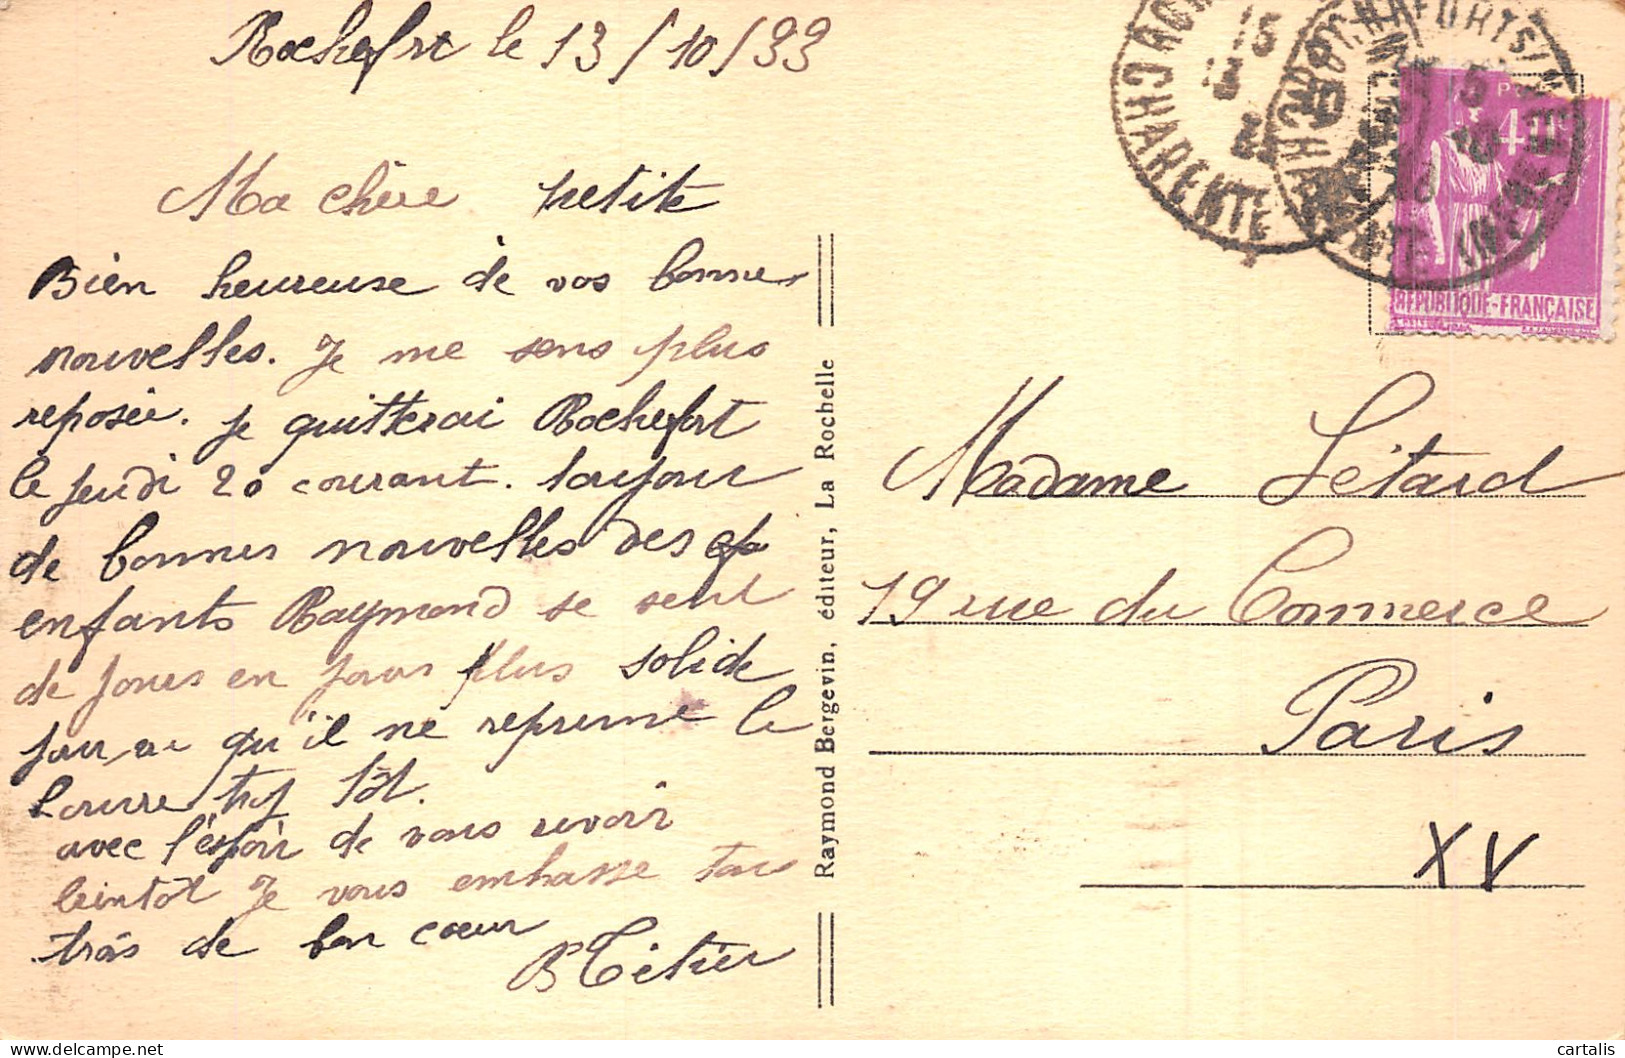 Rochefort le 13/10/33
Ma chère petite
Bien heureuse de vos bonne
nouvelles. Je me sens plus
reposée. je quitterai Rochefort
le jeudi 20 courant. toujour
de bonnes nouvelles des
enfants Raymond se sent
de jours en jours plus solide
pour qu'il ne reprenne le
Louvre trop tôt.
avec l'éspoir de vous revoir
bientôt Je vous embrasse tous
trois de bon cœur
Raymond Bergevin, éditeur, La Rochelle
CHARENTE
RÉPUBLIQUE-FRANÇAISE
Madame Létard
19 rue du Commerce
Paris
XV
cartalis